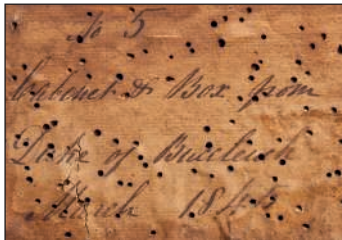 No 5
Cabinet & Box from
Duke of Buccleuch
March 1845